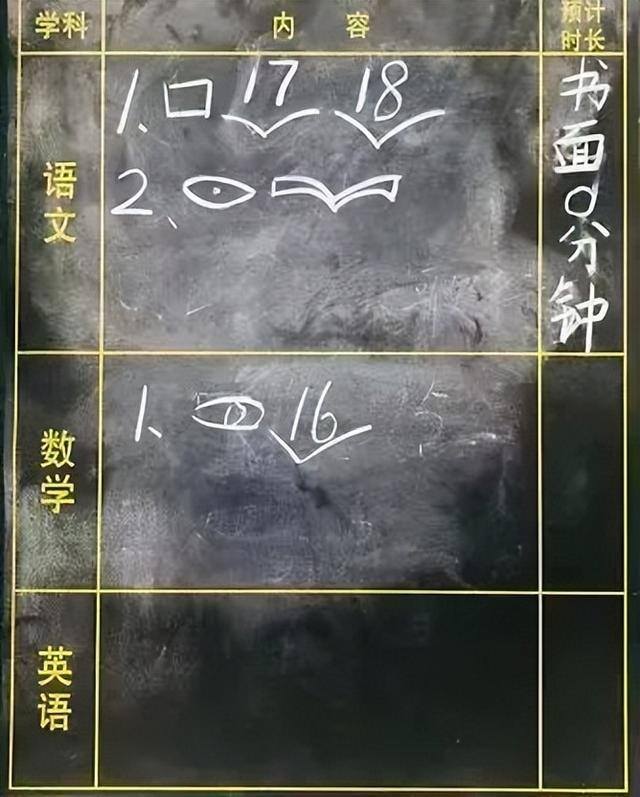 学科 内容 预计时长
语文
1、 17 18
2、
书面0分钟
数学
1、 16
英语